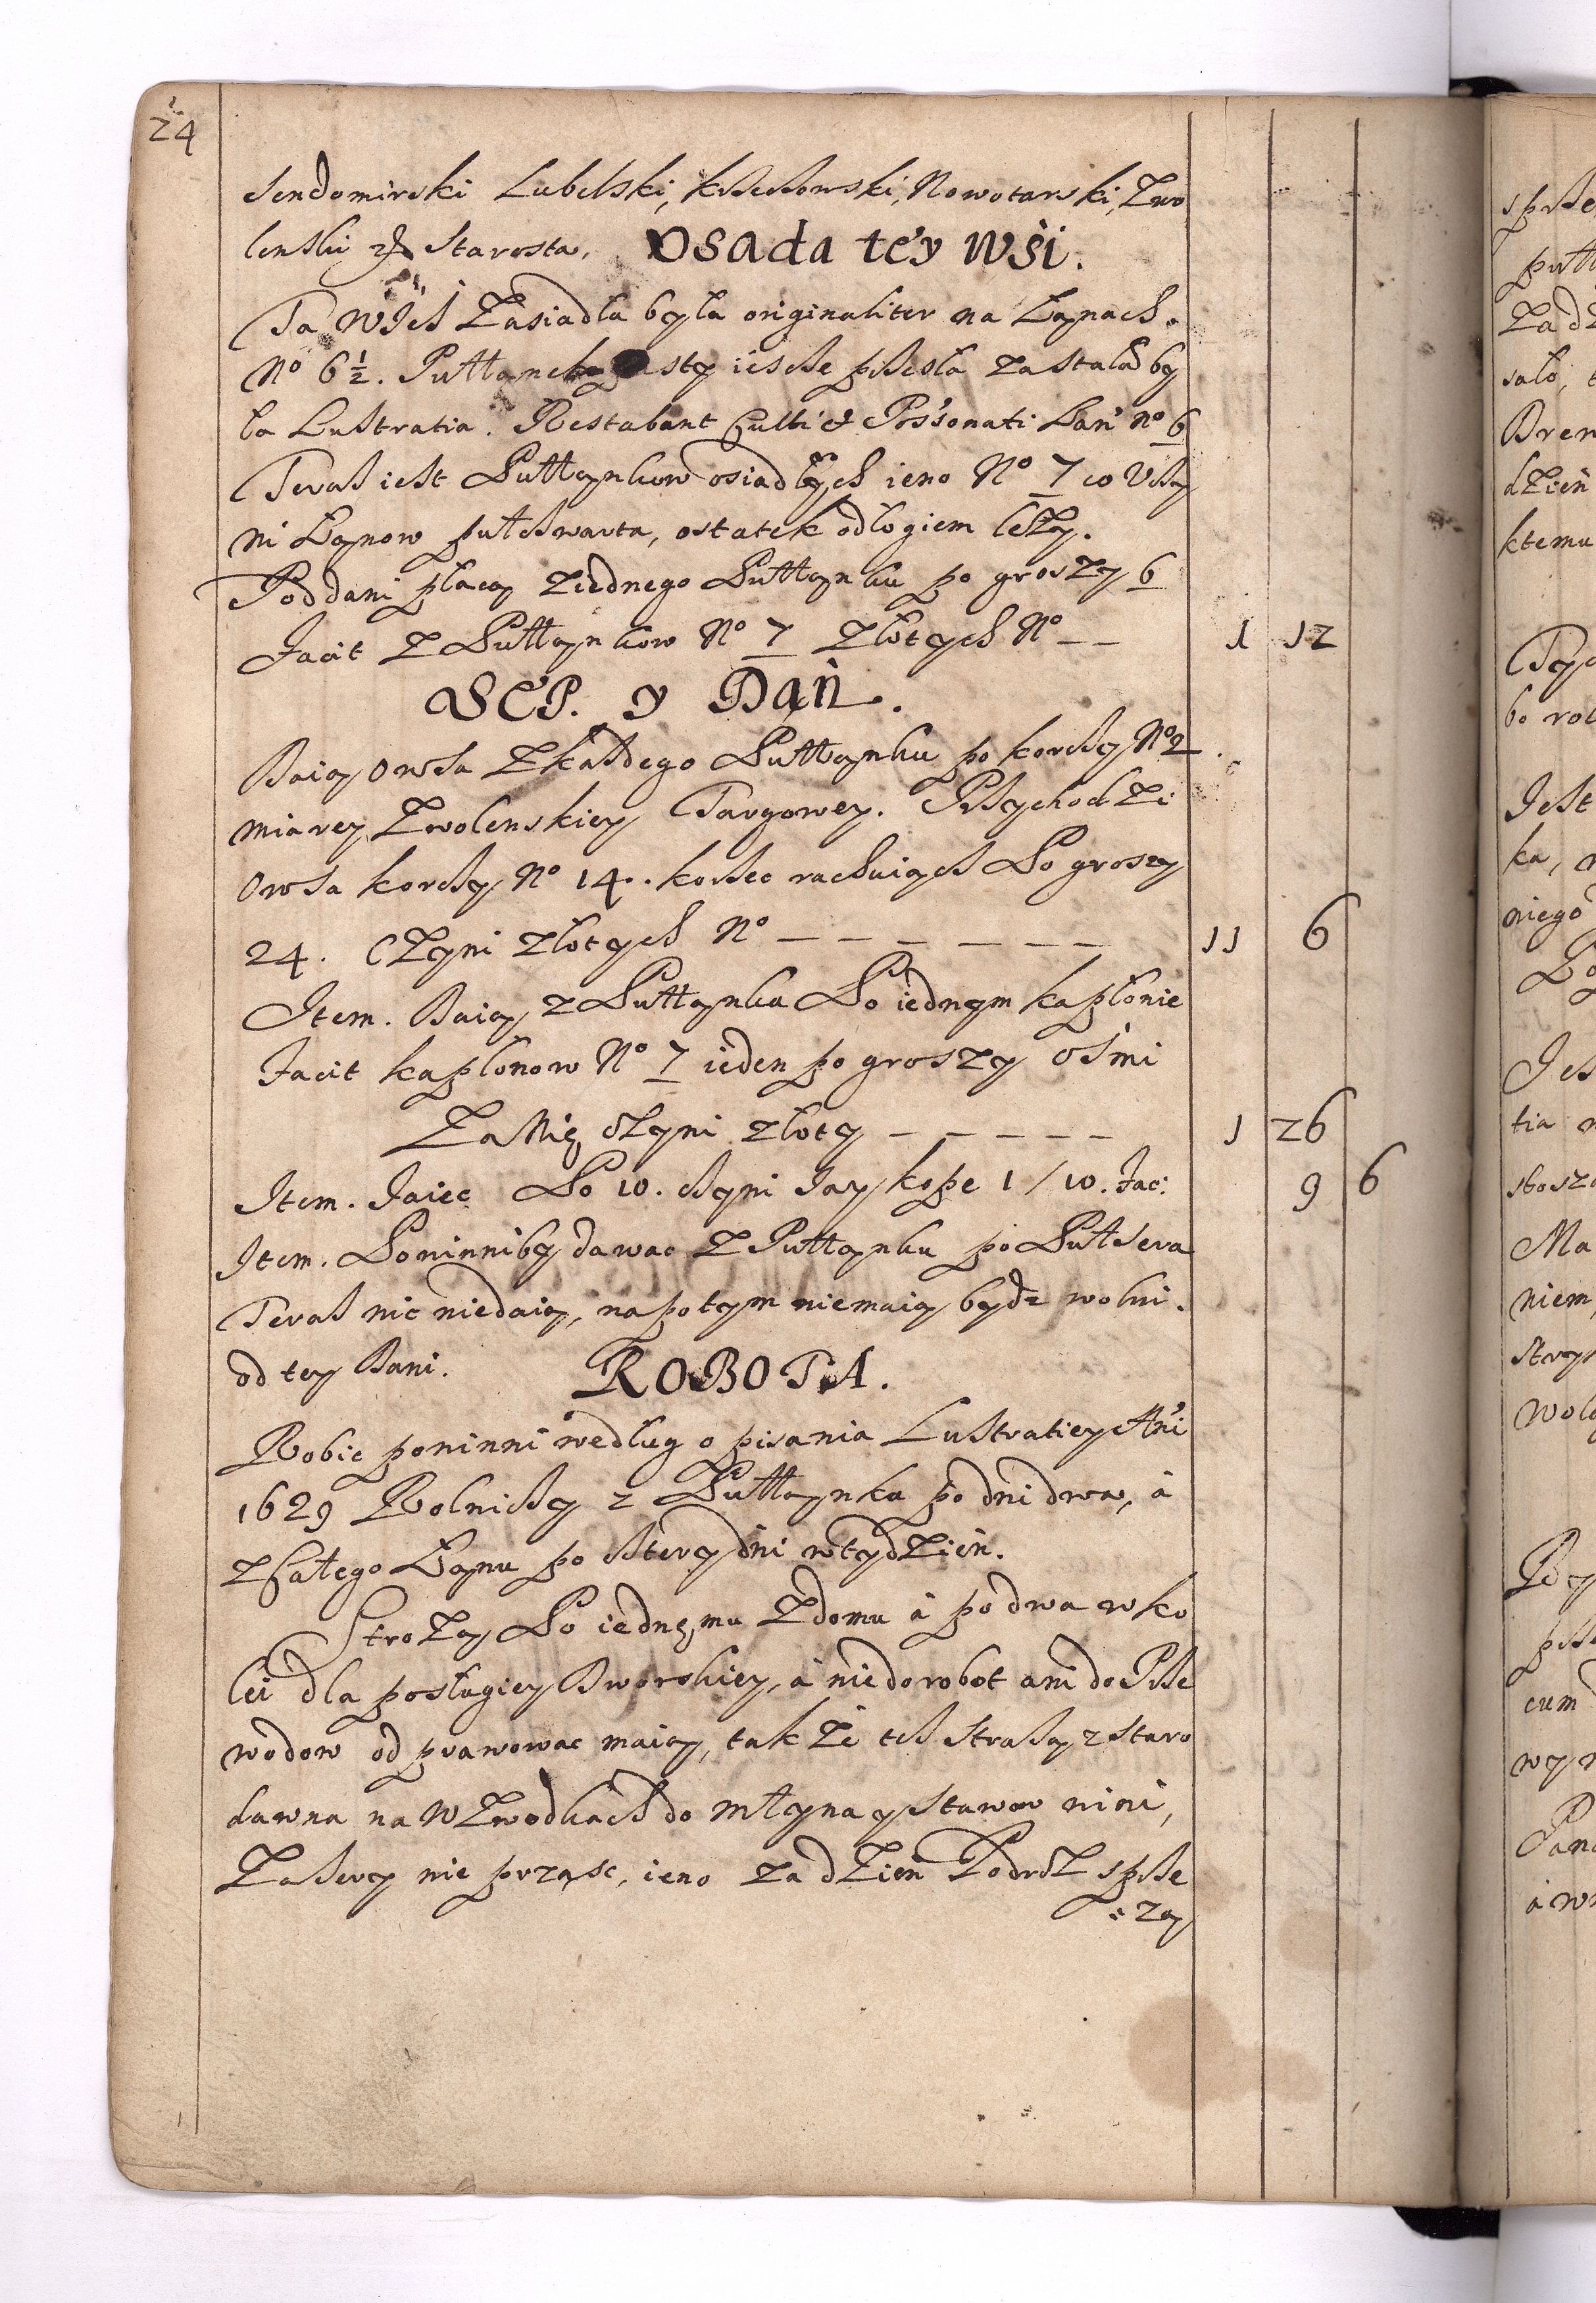 24
Sendomirski Lubelski, krzeszowski, Nowotarski, Zwo
lenski &c Starosta. Osada tey wśi.
Ta wieś Zasiadła była originaliter na Łanach
No 6½. Pułłanek pusty iescze przeszła zastała by
ła Lustratia. Restabant Culti et Possonati Łan. No 6
Teraz iest Pułłankow osiadłych ieno No 7 co vczy
ni Łanow pułczwarta, ostatek odłogiem leży.
Poddani płacą z iednego Pułłanku po groszy 6
Facit z Pułłankow No 7 złotych No — — 1 12
SEP. y Dań.
Daią owsa z każdego Pułłanku po korczy No 2
miarey Zwolenskiey Targowey. Przychodzi
Owsa korczy No 14. korzec rachuiąch Po groszy
24. Czyni złotych No — — — — — — 11 6
Item. Daią z Pułłanku Po iednym kapłonie
Facit kapłonow No 7 ieden po groszy ośmi
Za nię czyni złoty — — — — — 1 26
Item. Jaiec Po 10. czyni Jay kope 1/10. Fac: 9 6
Item. Powinniby dawac z Pułłanku po Pułsera
Teraz nic niedaią, napotym niemaią bydz wolni.
od tey Dani. ROBOTA.
Robic powinni według opisania Lustratiey Ani
1629 Rolniczy z Pułłanka po dni dwa, á
z Całego Łanu po cztery dni w tydzień.
Strożą Po iednęmu z domu á po dwa w ko
lei dla posługiey Dworskiey, á nie do robot ani do Prze
wodow odprawowac maią, także też Strażą z staro
dawna na Wzwodkach do młyna y Stawow nini,
Za sery nie prząsc, ieno za dzień Podroż sprze
=zą